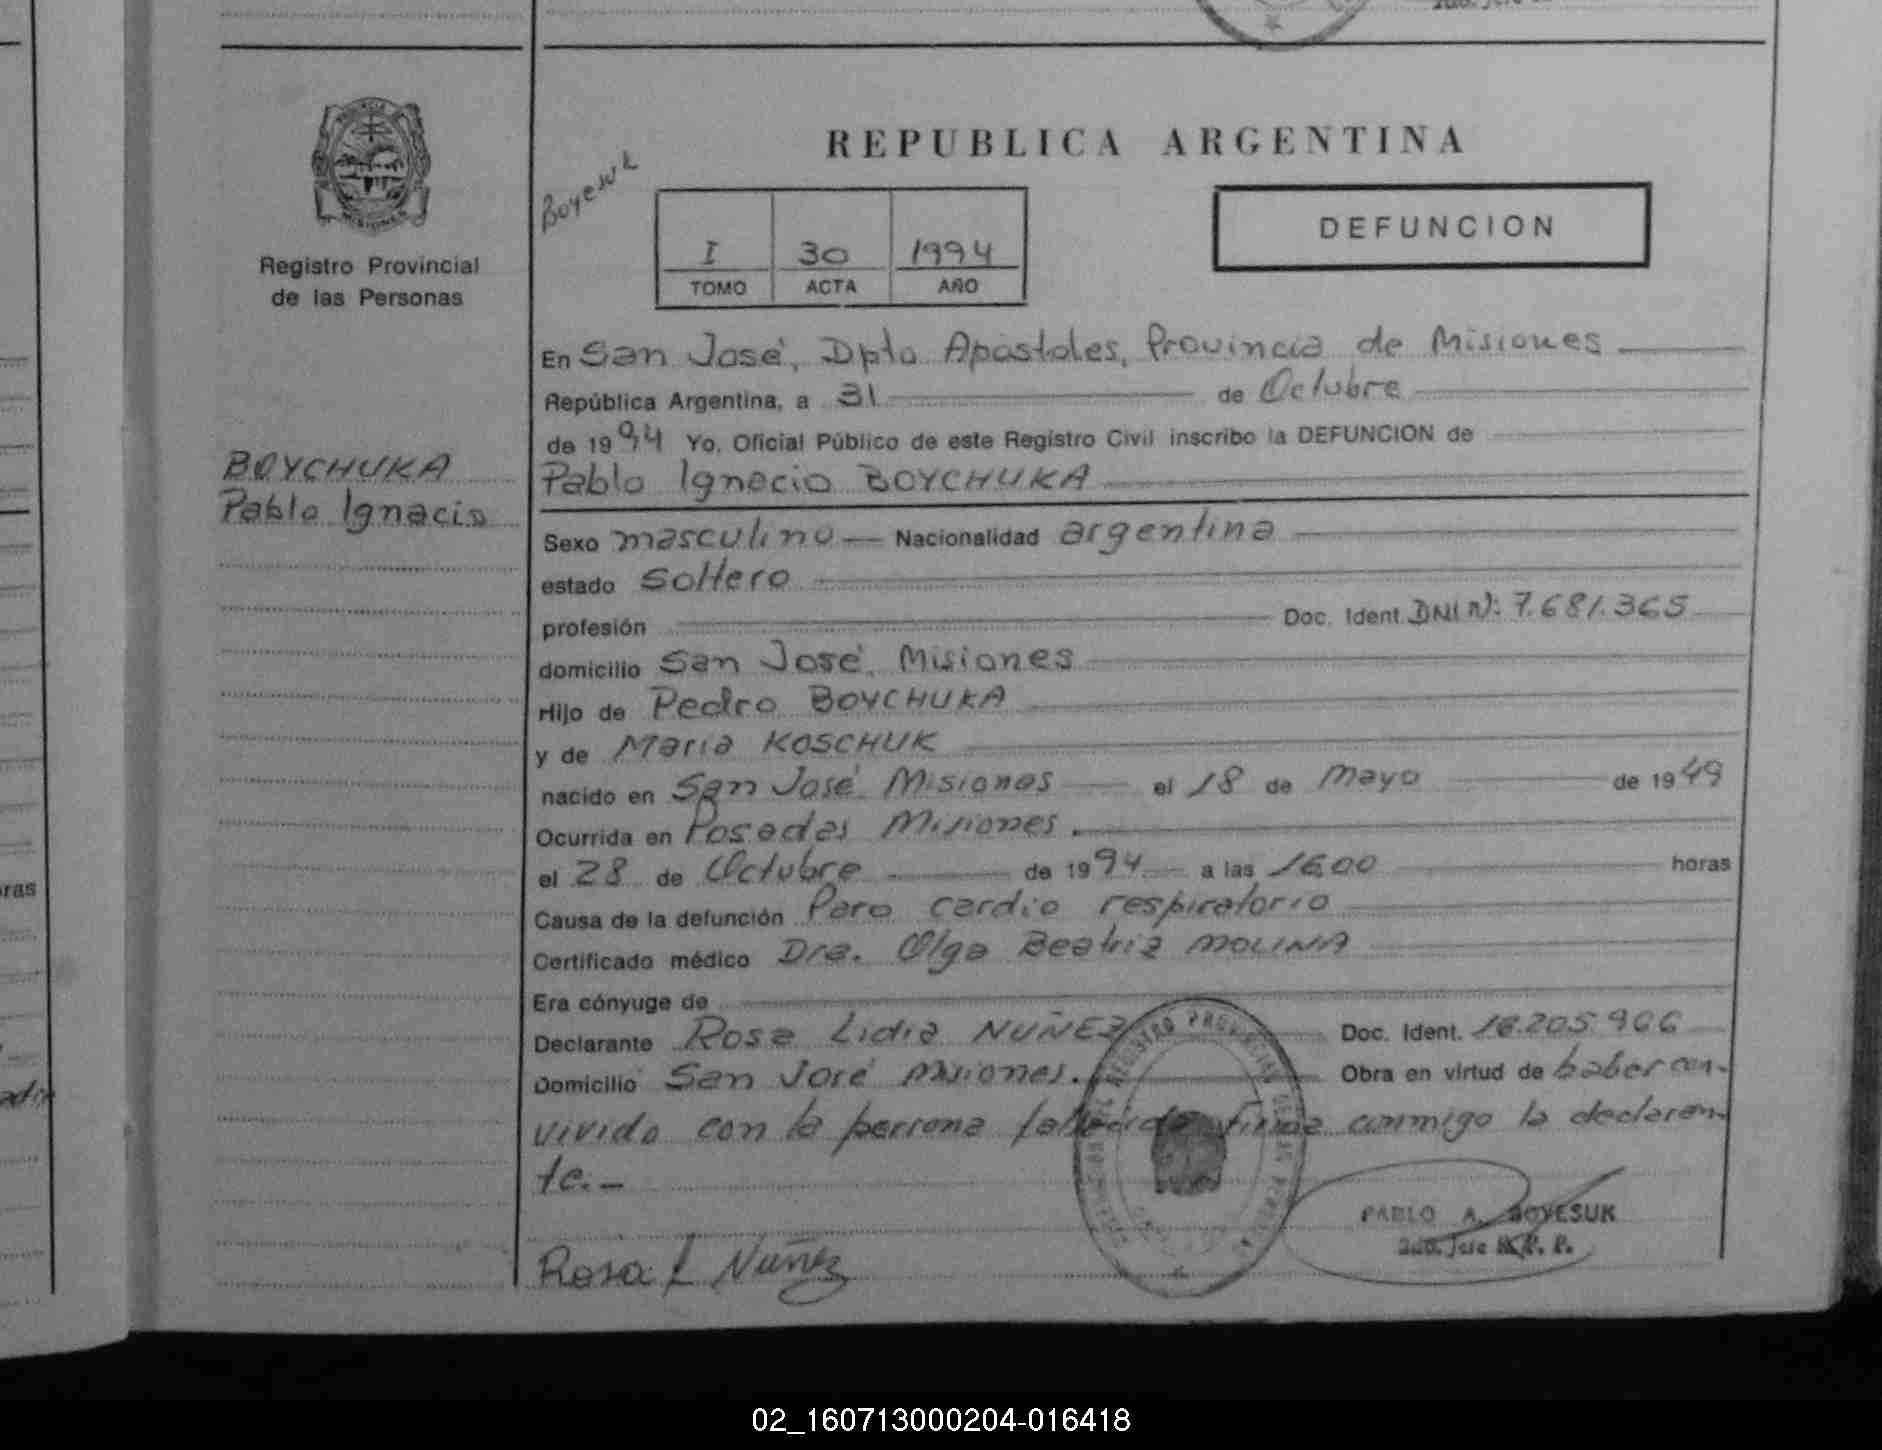 REPUBLICA ARGENTINA
Boyesuk
I 30 1994
TOMO ACTA AÑO
DEFUNCION
PROVINCIA
MISIONES
Registro Provincial
de las Personas
BOYCHUKA
Pablo Ignacio
En San José, Dpto Apóstoles, Provincia de Misiones
República Argentina, a 31 de Octubre
de 1994 Yo, Oficial Público de este Registro Civil inscribo la DEFUNCION de
Pablo Ignacio BOYCHUKA
Sexo masculino — Nacionalidad argentina
estado soltero
profesión Doc. Ident. DNI Nº: 7.681.365
domicilio San José, Misiones
Hijo de Pedro BOYCHUKA
y de Maria KOSCHUK
nacido en San José Misiones el 18 de Mayo de 1949
Ocurrida en Posadas Misiones.
el 28 de Octubre de 1994 a las 16,00 horas
Causa de la defunción Paro cardio respiratorio
Certificado médico Dra. Olga Beatriz MOLINA
Era cónyuge de
Declarante Rosa Lidia NUÑEZ Doc. Ident. 16.205.966
Domicilio San José Misiones. Obra en virtud de haber con-
vivido con la persona fallecida firma conmigo la declaran-
te.-
Rosa L Nuñez
PABLO A. BOYESUK
R. P. P.
ras
02_160713000204-016418